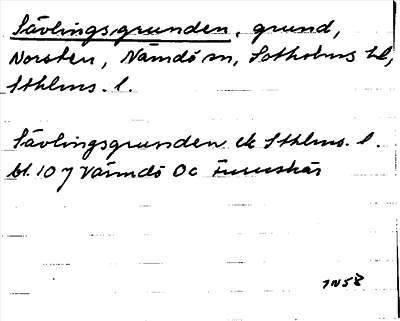 Sävlingsgrunden, grund,
Norsten, Nämdö sn, Sotholms hd,
Sthlms. l.
Sävlingsgrunden ek Sthlms. l.
bl. 107 Värmdö Oc Furuskär
7N58